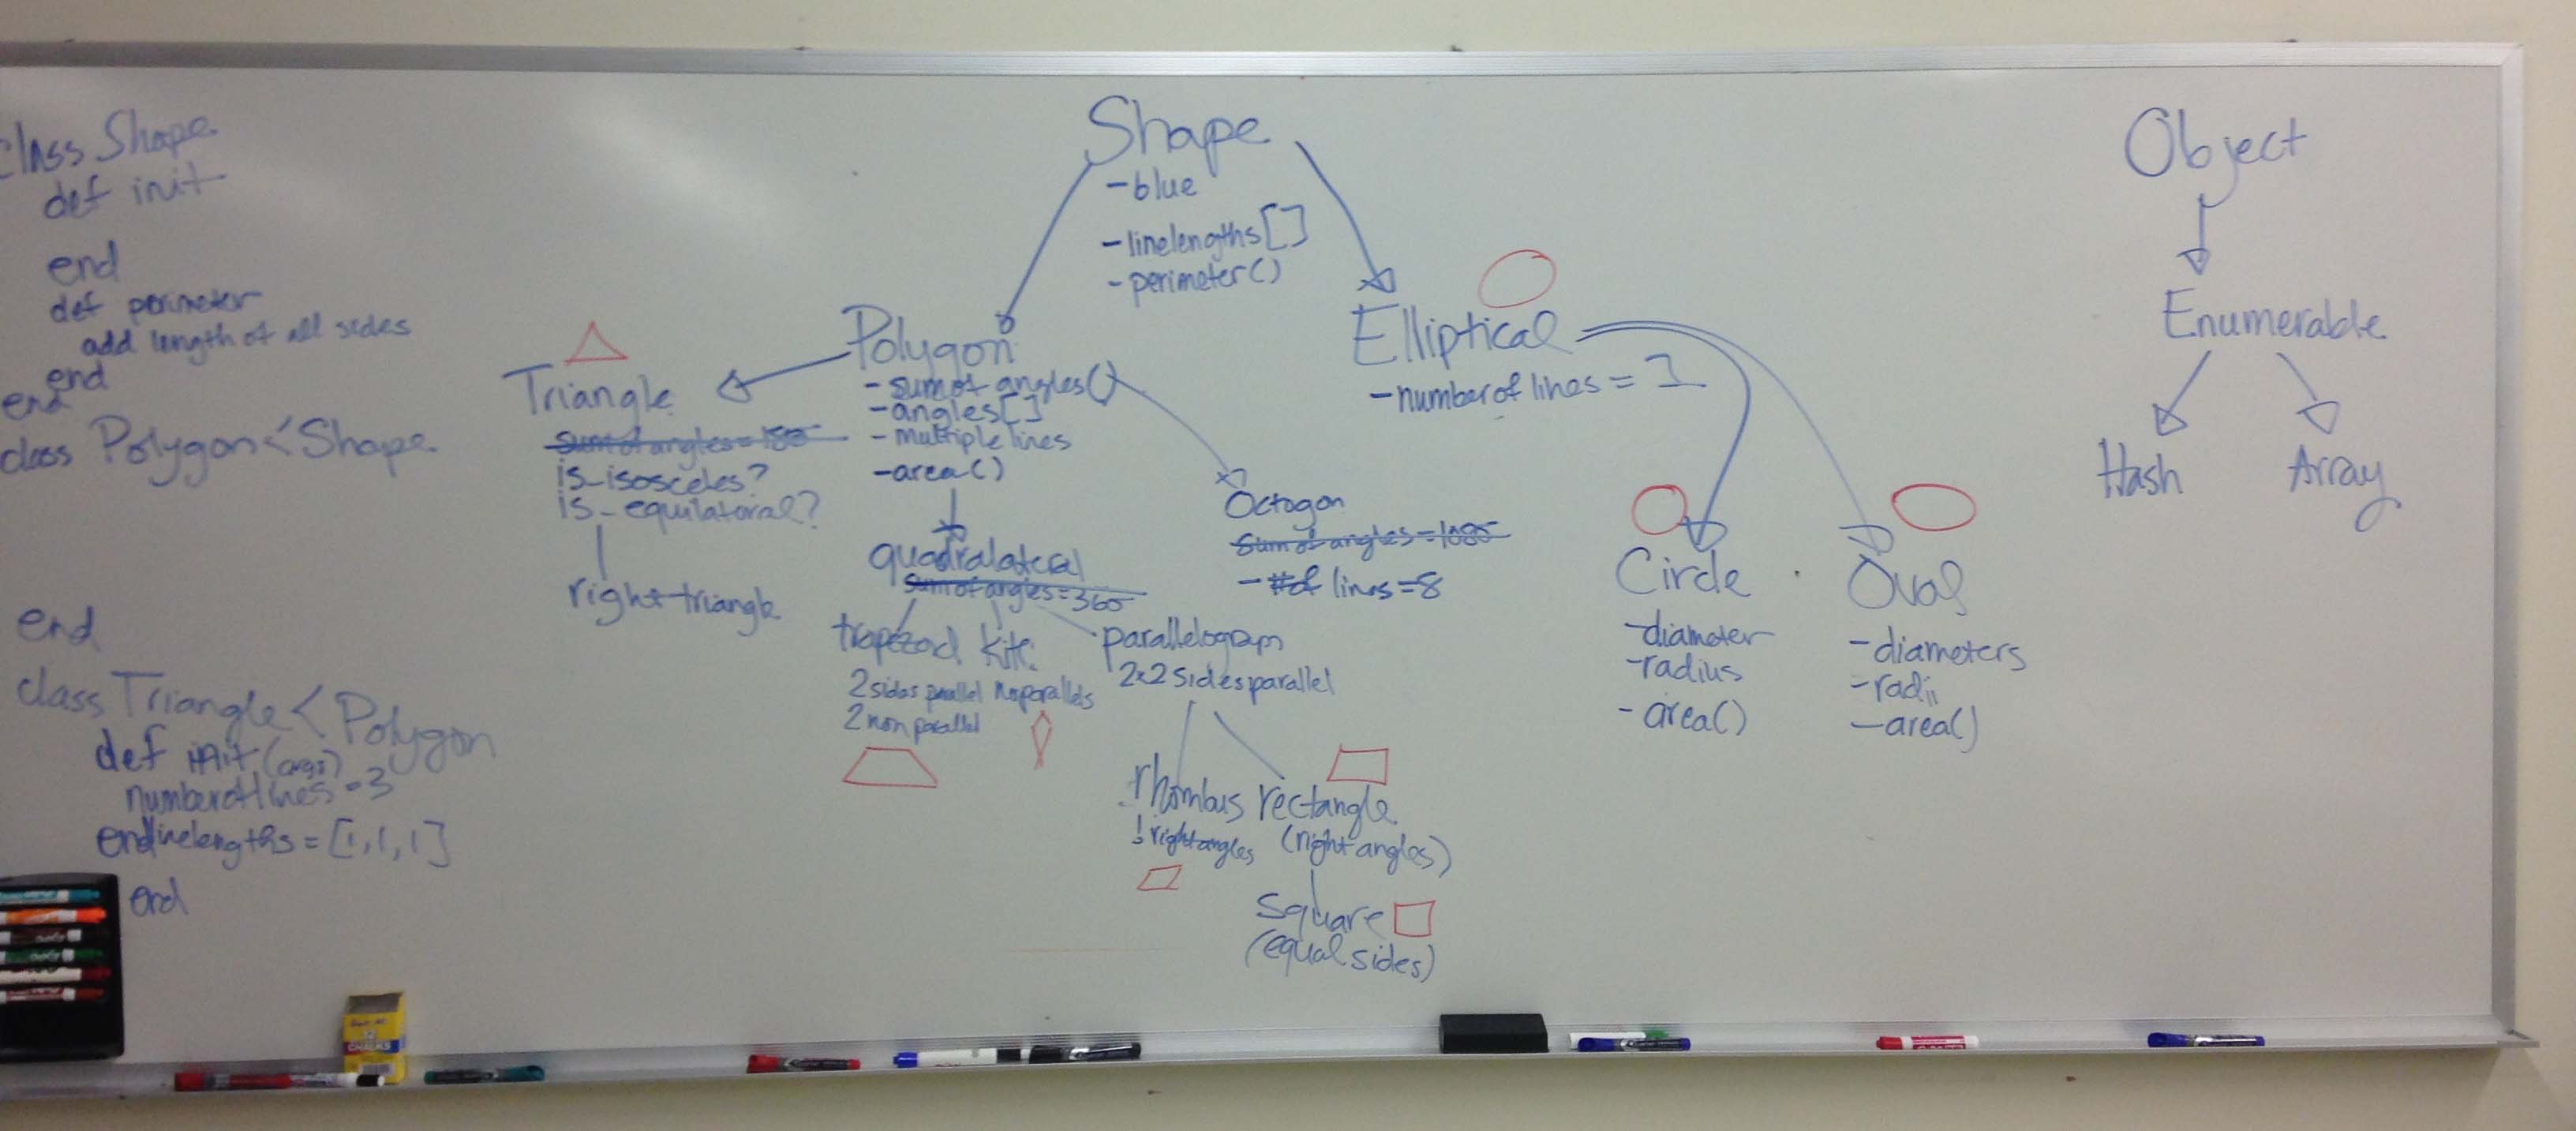 class Shape
def init
end
def perimeter
add length of all sides
end
end
class Polygon < Shape
end
class Triangle < Polygon
def init (args)
numberoflines = 3
linelengths = [1, 1, 1]
end
end
Shape
- blue
- linelengths[]
- perimeter()
Polygon
- sumof angles()
- angles[]
- multiple lines
- area()
Triangle
Sum of angles = 180
is_isosceles?
is_equilatoral?
right triangle
quadralateral
Sum of angles = 360
trapezoid
2 sides parallel
2 non parallel
kite
no parallels
parallelogram
2x2 sides parallel
rhombus
! right angles
rectangle
(right angles)
square
(equal sides)
Octogon
Sum of angles = 1085
- # of lines = 8
Elliptical
- number of lines = 1
Circle
- diameter
- radius
- area()
Oval
- diameters
- radii
- area()
Object
Enumerable
Hash
Array
CHALKS